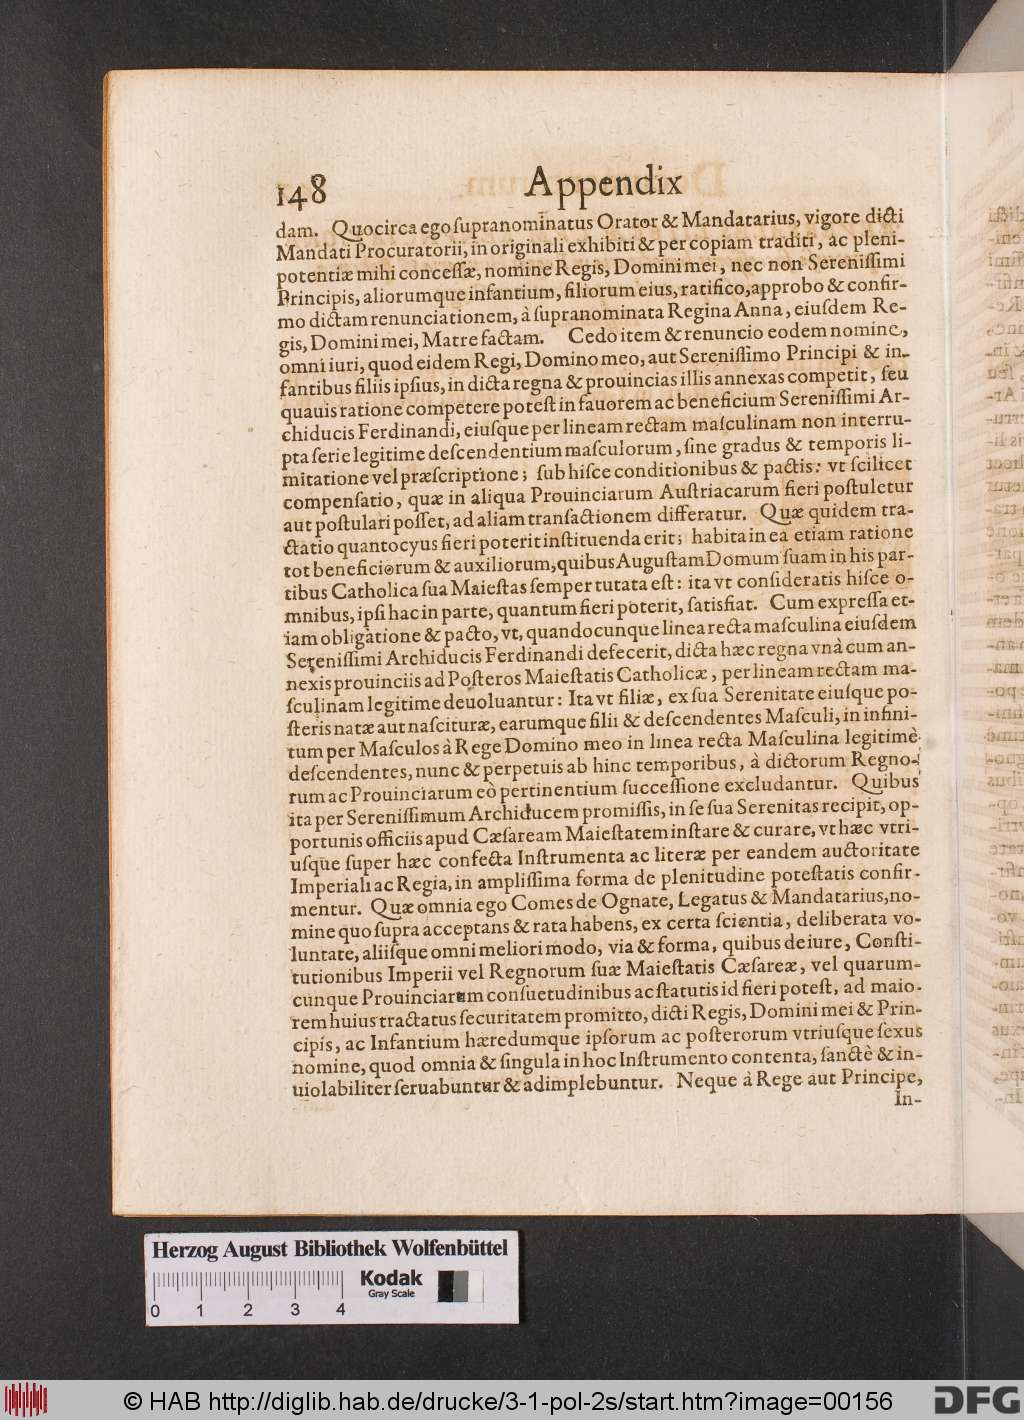 148 Appendix
dam. Quocirca ego ſupranominatus Orator & Mandatarius, vigore dicti
Mandati Procuratorii, in originali exhibiti & per copiam traditi, ac pleni-
potentiæ mihi conceſſæ, nomine Regis, Domini mei, nec non Sereniſſimi
Principis, aliorumque infantium, filiorum eius, ratifico, approbo & confir-
mo dictam renunciationem, à ſupranominata Regina Anna, eiuſdem Re-
gis, Domini mei, Matre factam. Cedo item & renuncio eodem nomine,
omni iuri, quod eidem Regi, Domino meo, aut Sereniſſimo Principi & in-
fantibus filiis ipſius, in dicta regna & prouincias illis annexas competit, ſeu
quauis ratione competere poteſt in fauorem ac beneficium Sereniſſimi Ar-
chiducis Ferdinandi, eiuſque per lineam rectam maſculinam non interru-
pta ſerie legitime deſcendentium maſculorum, ſine gradus & temporis li-
mitatione vel præſcriptione; ſub hiſce conditionibus & pactis: vt ſcilicet
compenſatio, quæ in aliqua Prouinciarum Auſtriacarum fieri poſtuletur
aut poſtulari poſſet, ad aliam tranſactionem differatur. Quæ quidem tra-
ctatio quantocyus fieri poterit inſtituenda erit; habita in ea etiam ratione
tot beneficiorum & auxiliorum, quibus Auguſtam Domum ſuam in his par-
tibus Catholica ſua Maieſtas ſemper tutata eſt: ita vt conſideratis hiſce o-
mnibus, ipſi hac in parte, quantum fieri poterit, ſatisfiat. Cum expreſſa et-
iam obligatione & pacto, vt, quandocunque linea recta maſculina eiuſdem
Sereniſſimi Archiducis Ferdinandi defecerit, dicta hæc regna vnà cum an-
nexis prouinciis ad Poſteros Maieſtatis Catholicæ, per lineam rectam ma-
ſculinam legitime deuoluantur: Ita vt filiæ, ex ſua Serenitate eiuſque po-
ſteris natæ aut naſcituræ, earumque filii & deſcendentes Maſculi, in infini-
tum per Maſculos à Rege Domino meo in linea recta Maſculina legitimè
deſcendentes, nunc & perpetuis ab hinc temporibus, à dictorum Regno-
rum ac Prouinciarum eò pertinentium ſucceſſione excludantur. Quibus
ita per Sereniſſimum Archiducem promiſſis, in ſe ſua Serenitas recipit, op-
portunis officiis apud Cæſaream Maieſtatem inſtare & curare, vt hæc vtri-
uſque ſuper hæc confecta Inſtrumenta ac literæ per eandem auctoritate
Imperiali ac Regia, in ampliſſima forma de plenitudine poteſtatis confir-
mentur. Quæ omnia ego Comes de Ognate, Legatus & Mandatarius, no-
mine quo ſupra acceptans & rata habens, ex certa ſcientia, deliberata vo-
luntate, aliiſque omni meliori modo, via & forma, quibus de iure, Conſti-
tutionibus Imperii vel Regnorum ſuæ Maieſtatis Cæſareæ, vel quarum-
cunque Prouinciarum conſuetudinibus ac ſtatutis id fieri poteſt, ad maio-
rem huius tractatus ſecuritatem promitto, dicti Regis, Domini mei & Prin-
cipis, ac Infantium hæredumque ipſorum ac poſterorum vtriuſque ſexus
nomine, quod omnia & ſingula in hoc Inſtrumento contenta, ſanctè & in-
uiolabiliter ſeruabuntur & adimplebuntur. Neque à Rege aut Principe,
In-
Herzog August Bibliothek Wolfenbüttel
Kodak
Gray Scale
0 1 2 3 4
© HAB http://diglib.hab.de/drucke/3-1-pol-2s/start.htm?image=00156
DFG